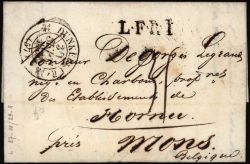 DUNKE
L.F.R.1
Monsieur Degorges Legrand
neg. en Charbons, prop. res
des Etablissements de
Hornu
près Mons
Belgique